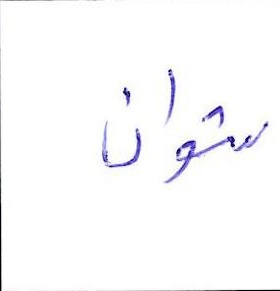 شوان